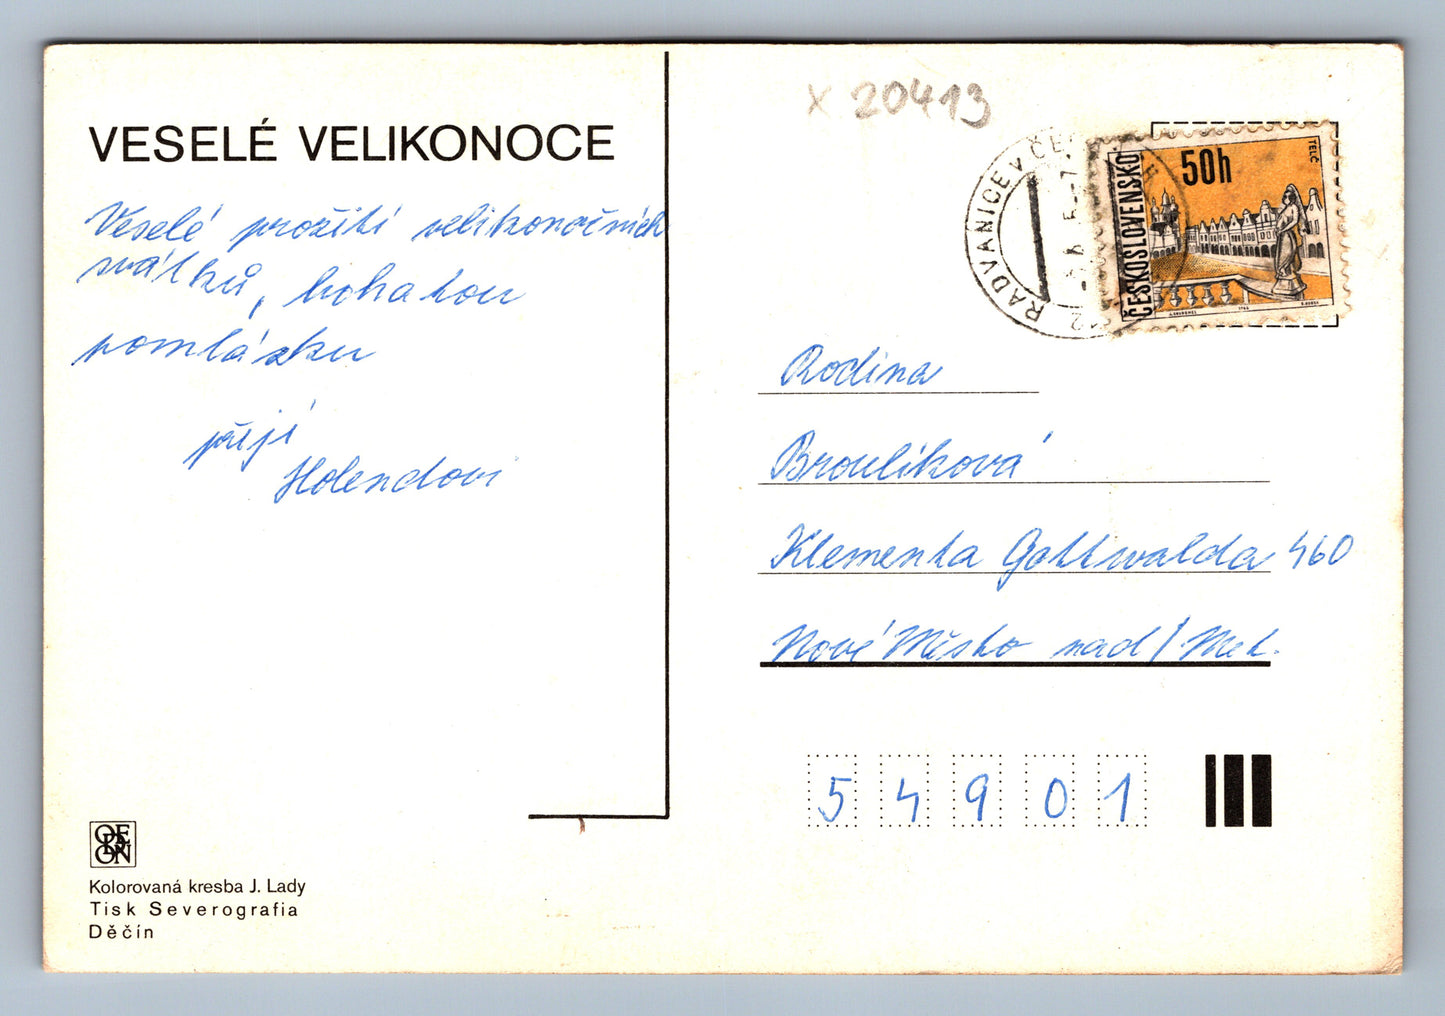 VESELÉ VELIKONOCE
Veselé prožití velikonočních
svátků, bohatou
pomlázku
přejí
Holendovi
ODEON
Kolorovaná kresba J. Lady
Tisk Severografia
Děčín
x 20413
RADVANICE V ČE
ČESKOSLOVENSKO
50h
TELČ
Rodina
Broulíková
Klementa Gottwalda 460
Nové Město nad/Met.
54901